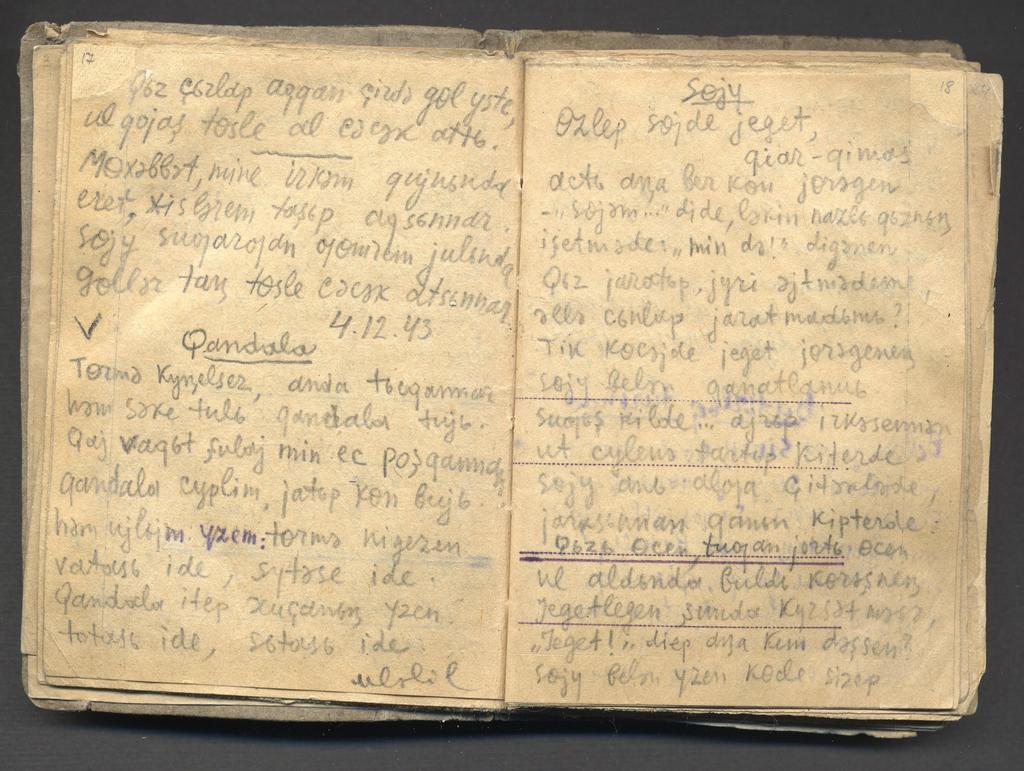 17
Qьz çьrlap aqqan çirdə gɵl yste,
ul qojaş tɵsle al cəcək attь.
Mɵxəbbət, mine irkəm qujnьnda
eret, xislərem taşьp aqsьnnar.
Sɵjy suqaroјdn ƣomrem julьnda
gɵllər taŋ tɵsle cəcək atsьnnar
4.12.43
V
Qandala
Tɵrmə kyŋelsez, anda tьcqannar
həm səke tulь qandala tujь.
Qaj vaqьt şulaj min ec poşqannaq
qandala cyplim, jatьp kɵn bujь.
həm ujlыjm yzem: tɵrmə nigezen
vatasь ide, sytəse ide.
Qandala itep xuçanьŋ yzen
totasь ide, sьtasь ide
18
Sɵjy
Ɵzlep sɵjde jeget,
qiar-qimas
actь aŋa ber kɵn jɵrəgen
–"Sɵjəm..." dide, ləkin nazlь qьznьŋ
işetməde: "min də!" digənen.
Qьz jaratьp, jyri əjtmədeme,
əllə cьnlap jaratmadьmь?
Tik kɵcəjde jeget jɵrəgenen
sɵjy belən qanatlanuь
suƣьş kilde... ajrьp irkəsennən
ut cylenə tartьp kiterde
Sɵjy anь alƣa çitəkləde,
jarasьnnan qanьn kipterde.
Qьzь ɵcen, tuƣan jortь ɵcen
ul aldьnda buldь kɵrəşneŋ
Jegetlegen şunda kyrsətməsə,
"Jeget!", diep aŋa kem dəşsen?
Sɵjy belən yzen kɵcle sizep